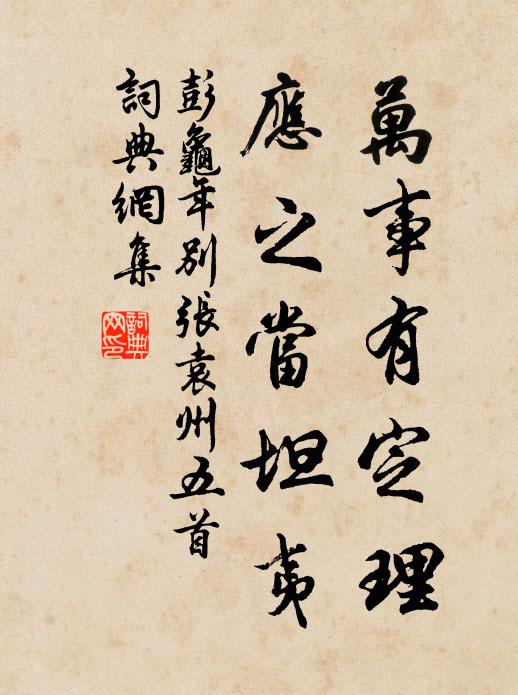 萬事有定理
應之當坦夷
彭龜年別張袁州五首
詞典網集
詞典网印